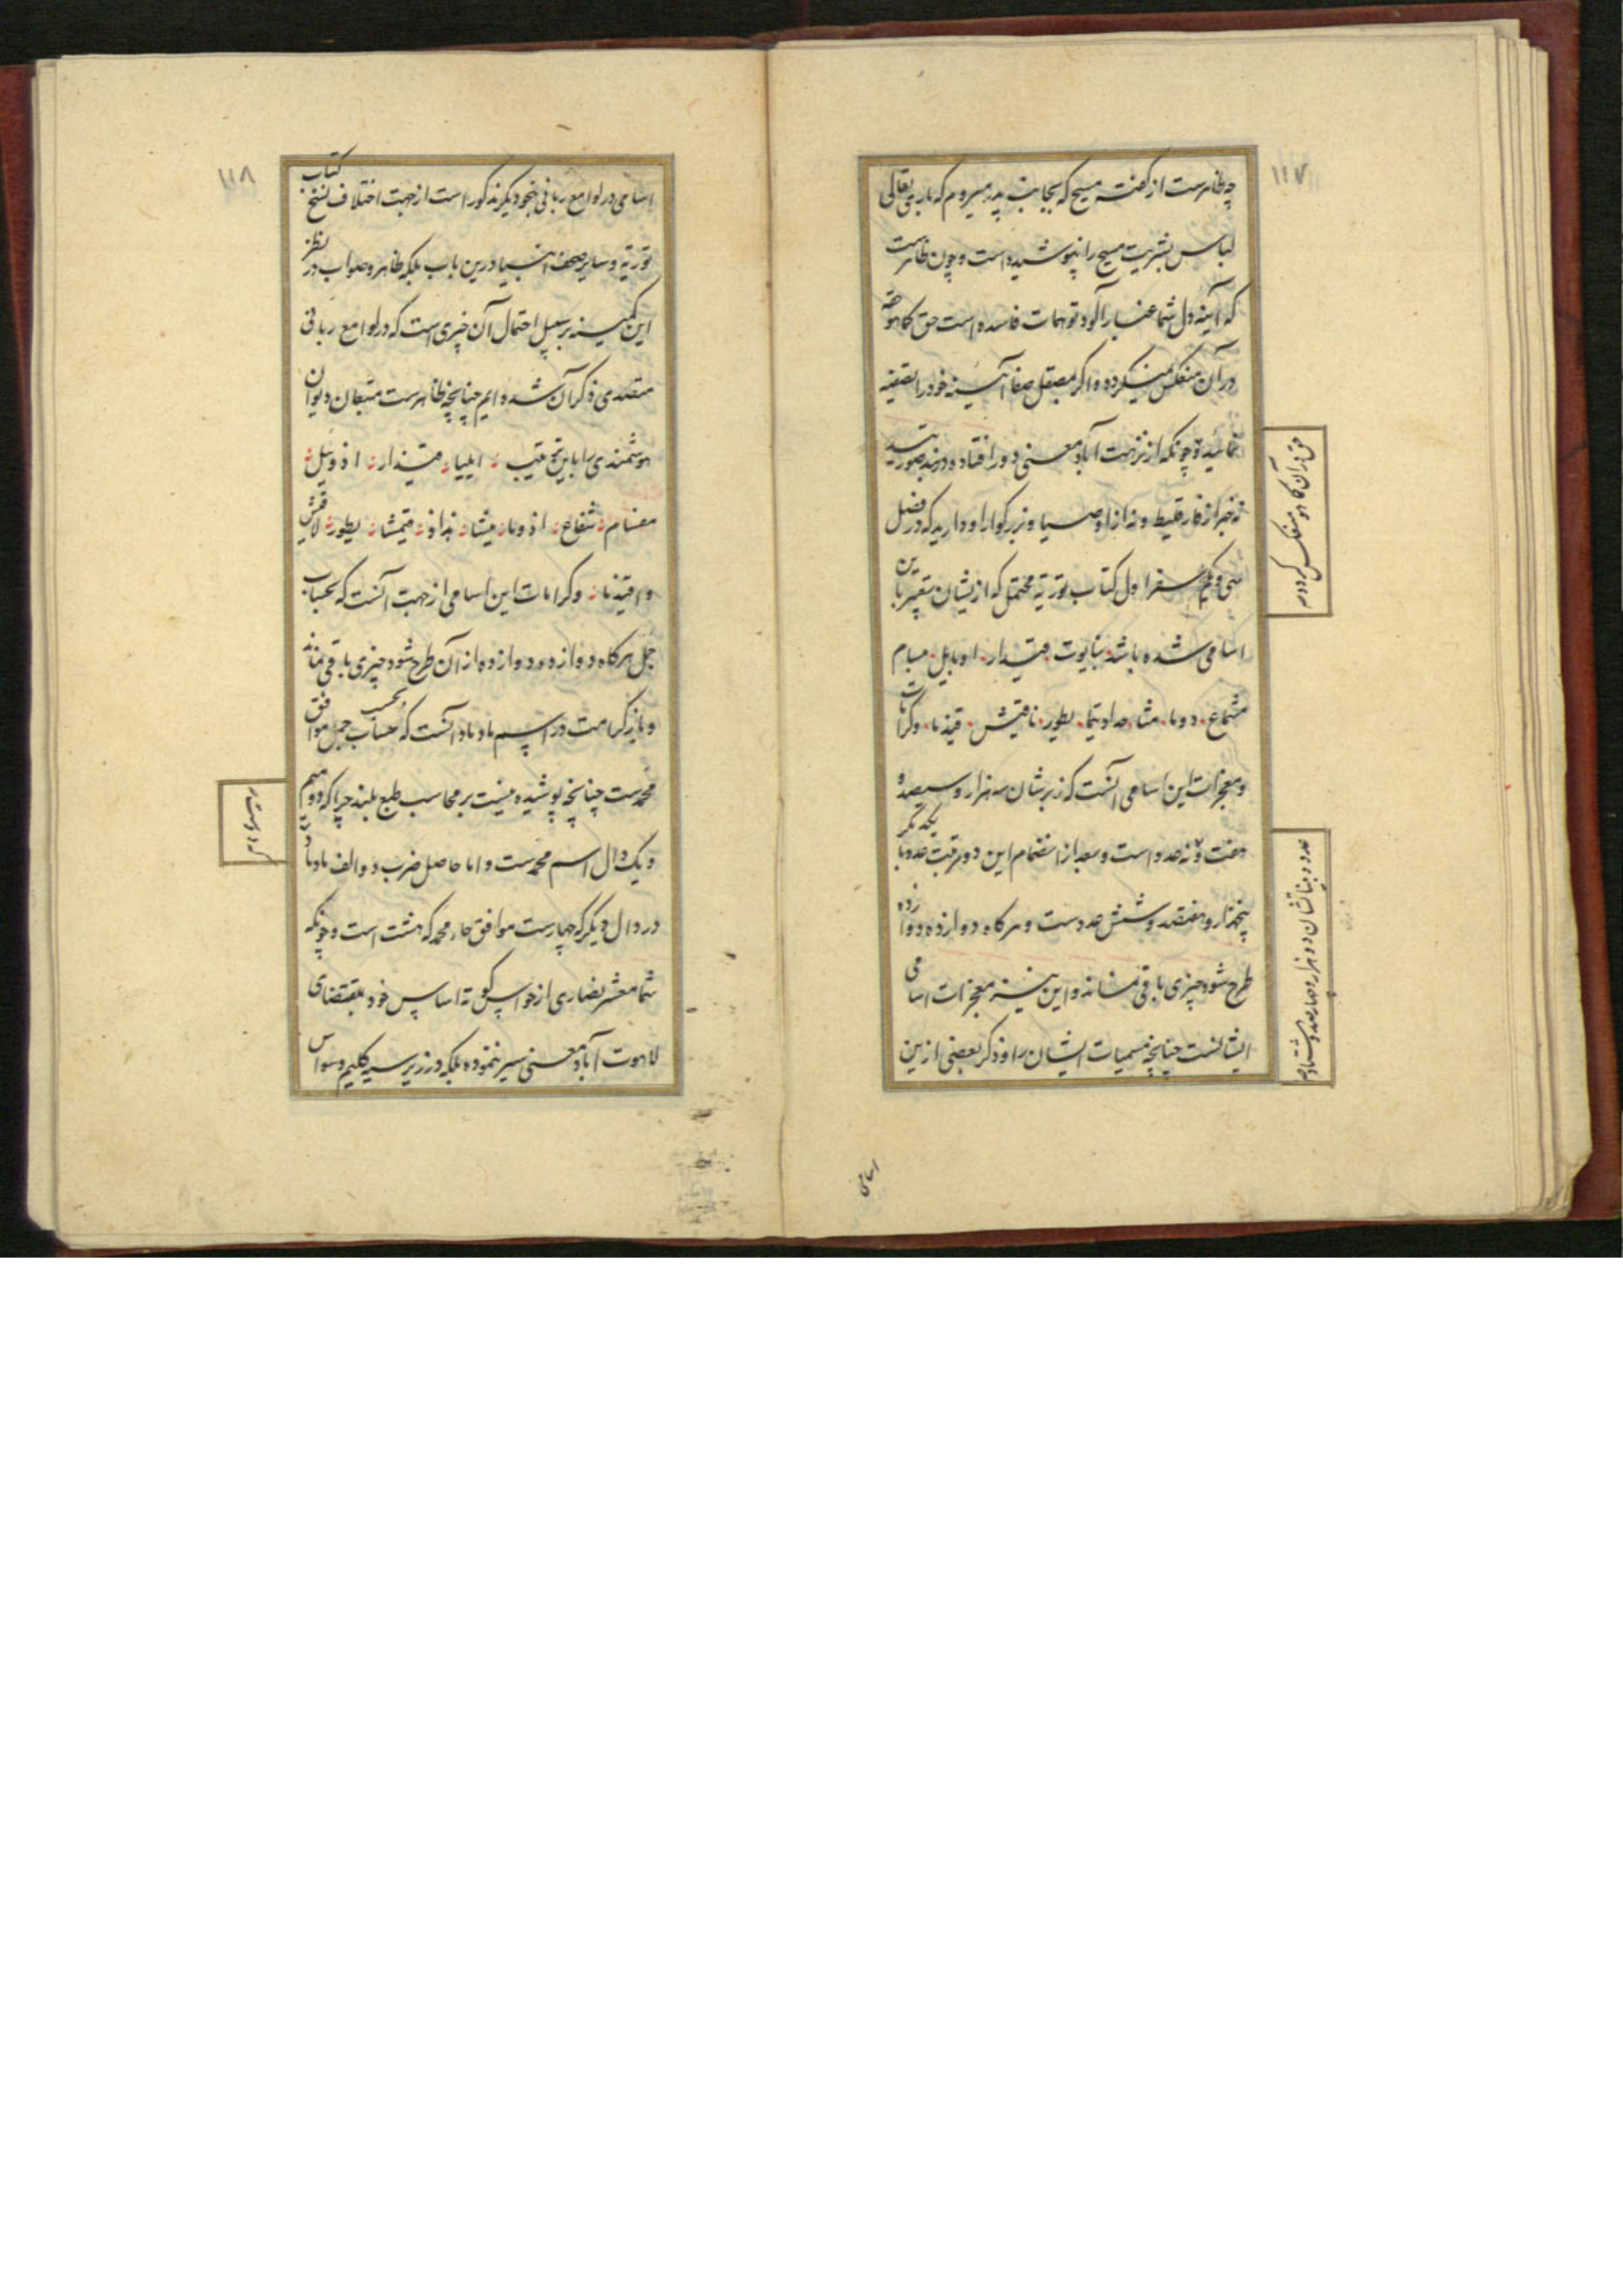 ۱۱۷
چه ظاهرست از گفته مسیح که بجانب پدر میروم که باری تعالی
لباس بشریت مسیح را نپوشیده است و چون ظاهرست
که آینه دل شما غبار آلود توهمات فاسده است حق کما هو حقه
در آن منعکس نمیگردد و اگر بمصقل صفا آینه خود را تصفیه
نمائید و چونکه از نزهت آباد معنی دور افتاده و در بند صورتید
نه خبر از فارقلیط و نه از اوصیا و بزرگوار او دارید که در فصل
سی و یکم سفر اول کتاب توریة محتمل که ازیشان تعبیر باین
اسامی شده باشد بنایوت قیدار اوبایل مبسام
مشماع دوما مشا حداد تیما یطور نافیش قیدما وکرامات
و معجزات این اسامی آنست که زبرشان سه هزار و سیصد و
هفت و نه عدد است و بعد از انضمام این دو مرتبت عدد با یکدیگر
پنجهزار و هفتصد و شش عددست و هر گاه دوازده دوازده
طرح شود چیزی باقی نماند و این نیز معجزات اسامی
ایشانست چنانچه مسمیات ایشان را و ذکر بعضی ازین
حق در آن کما هو منعکس گردد
عدد بیناتشان دو هزار و چهارصد و
اسامی
۱۱۸
اسامی در لوامع ربانی بنحو دیگر مذکور است از جهت اختلاف نسخ کتاب
توریة و سایر صحف انبیا درین باب بلکه ظاهر و صواب در نظر
این کمینه بر سبیل احتمال آن چیزی است که در لوامع ربانی
متصدی ذکر آن شده ایم چنانچه ظاهرست متبعان دیوان
هوشمندی را باین ترتیب ایلیا قیذار اذوئیل
مفسام شفاع اذوما میشا بذاذ قیمشا یطور لاقیش
و اقیذما وکرامات این اسامی از جهت آنست که بحساب
جمل هر گاه دوازده دوازده از آن طرح شود چیزی باقی نماند
و باز کرامت در اسم ماد ماد آنست که بحسب حساب جمل موافق
محمدست چنانچه پوشیده نیست بر محاسب طبع بلند چرا که دو میم
و یک دال اسم محمدست و اما حاصل ضرب دو الف ماد ماد
در دال دیگر که چهارست موافق حاء محمد که هشت است و چونکه
شما معشر نصاری از حواس کوته اساس خود بمقتضای
لاهوت آباد معنی سیر ننموده بلکه در زیر سیه گلیم وسواس